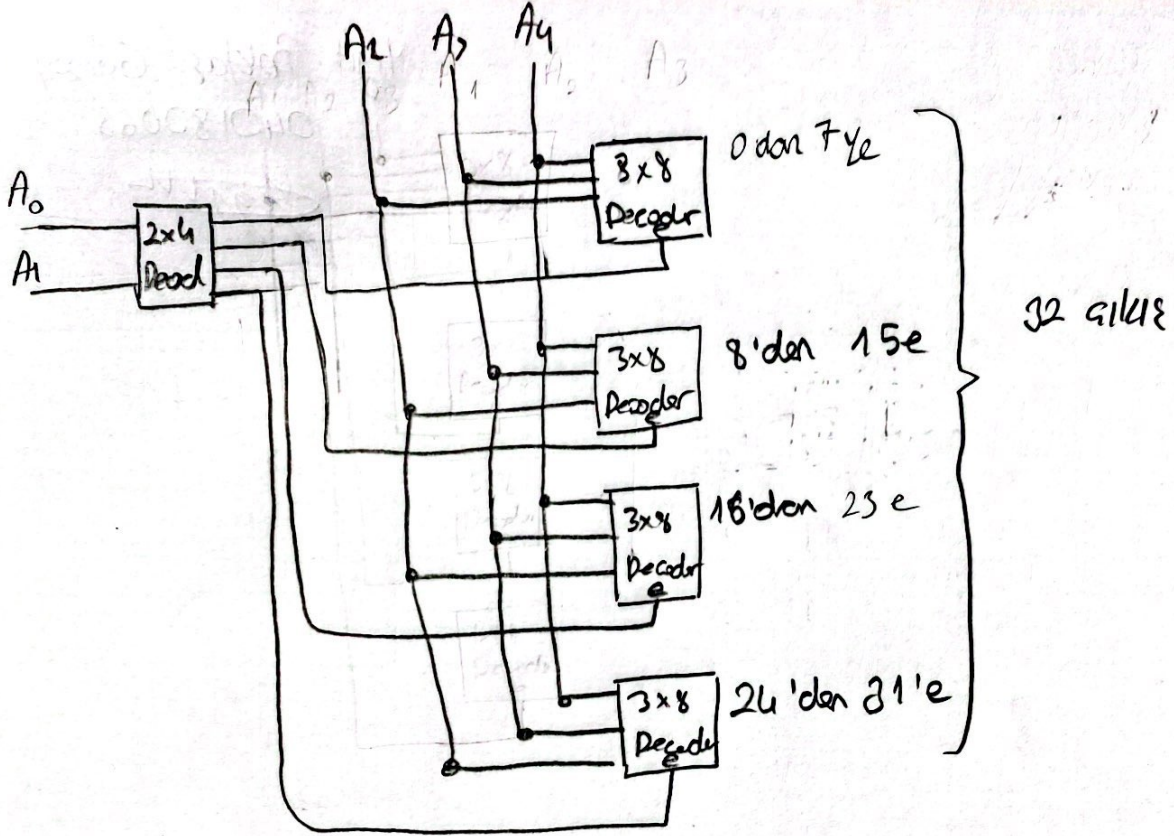 A2 A3 A4
A0
A1
2x4
Decod
3x8
Decoder
0 dan 7 ye
3x8
Decoder
e
8'den 15e
3x8
Decoder
e
16'dan 23 e
3x8
Decoder
e
24'den 31'e
32 çıkış